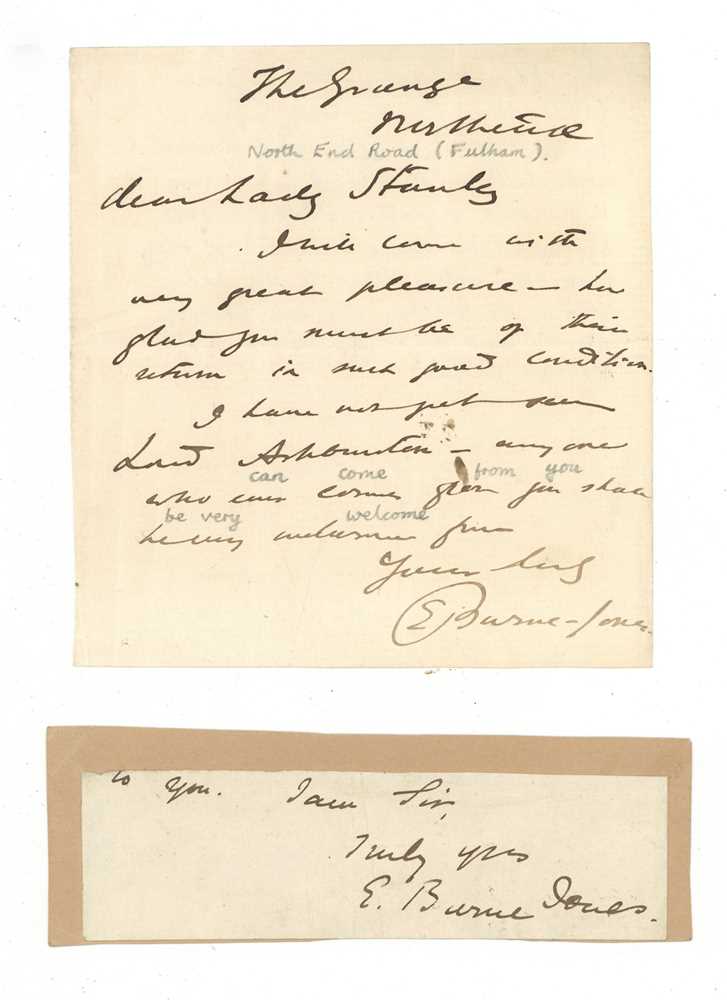 The Grange
Northend
North End Road (Fulham).
dear Lady Stanley
I will come with
very great pleasure — how
glad you must be of their
return in such good condition.
I have not yet seen
Lord Ashburton — anyone
can come from you
who comes from you shall
be very welcome
be very welcome from
Yours
E Burne-Jones.
to you. I am Sir,
Truly yrs
E. Burne Jones.